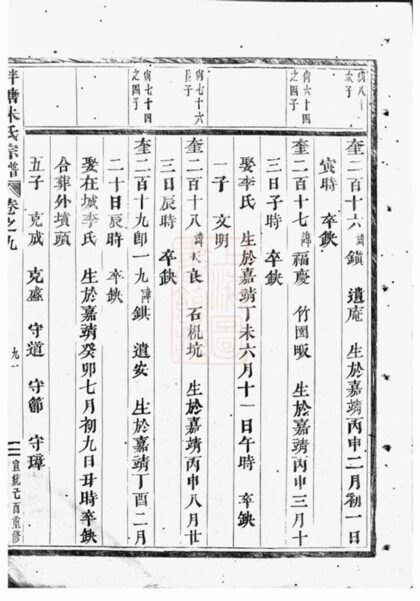 奎二百十六諱鎮 遺庵 生於嘉靖丙申二月初一日
寅時 卒鈌
尙六十四之四子
奎二百十七諱福慶 竹園畈 生於嘉靖丙申三月十
三日子時 卒鈌
娶李氏 生於嘉靖丁未六月十一日午時 卒鈌
一子 文明
尙七十六長子
奎二百十八諱天良 石梘坑 生於嘉靖丙申八月廿
三日辰時 卒鈌
尙七十四之四子
奎二百十九卽一九諱鉷 遺安 生於嘉靖丁酉二月
二十日辰時 卒鈌
娶在城李氏 生於嘉靖癸卯七月初九日丑時卒鈌
合葬外墳頭
五子 克成 克盛 守道 守節 守璋
泮塘朱氏宗譜 卷之九
九一
宣統己酉重修